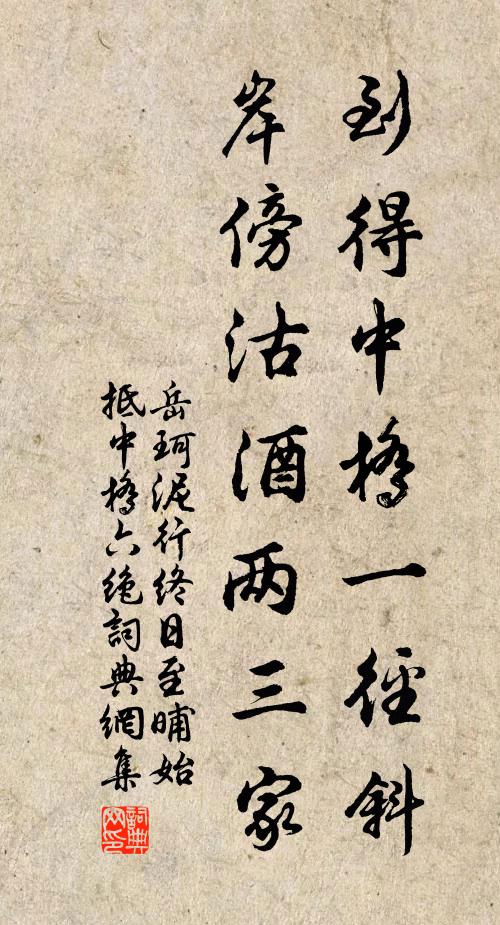 到得中橋一徑斜
岸傍沽酒两三家
岳珂泥行終日至晡始
抵中橋六绝詞典網集
詞典网印